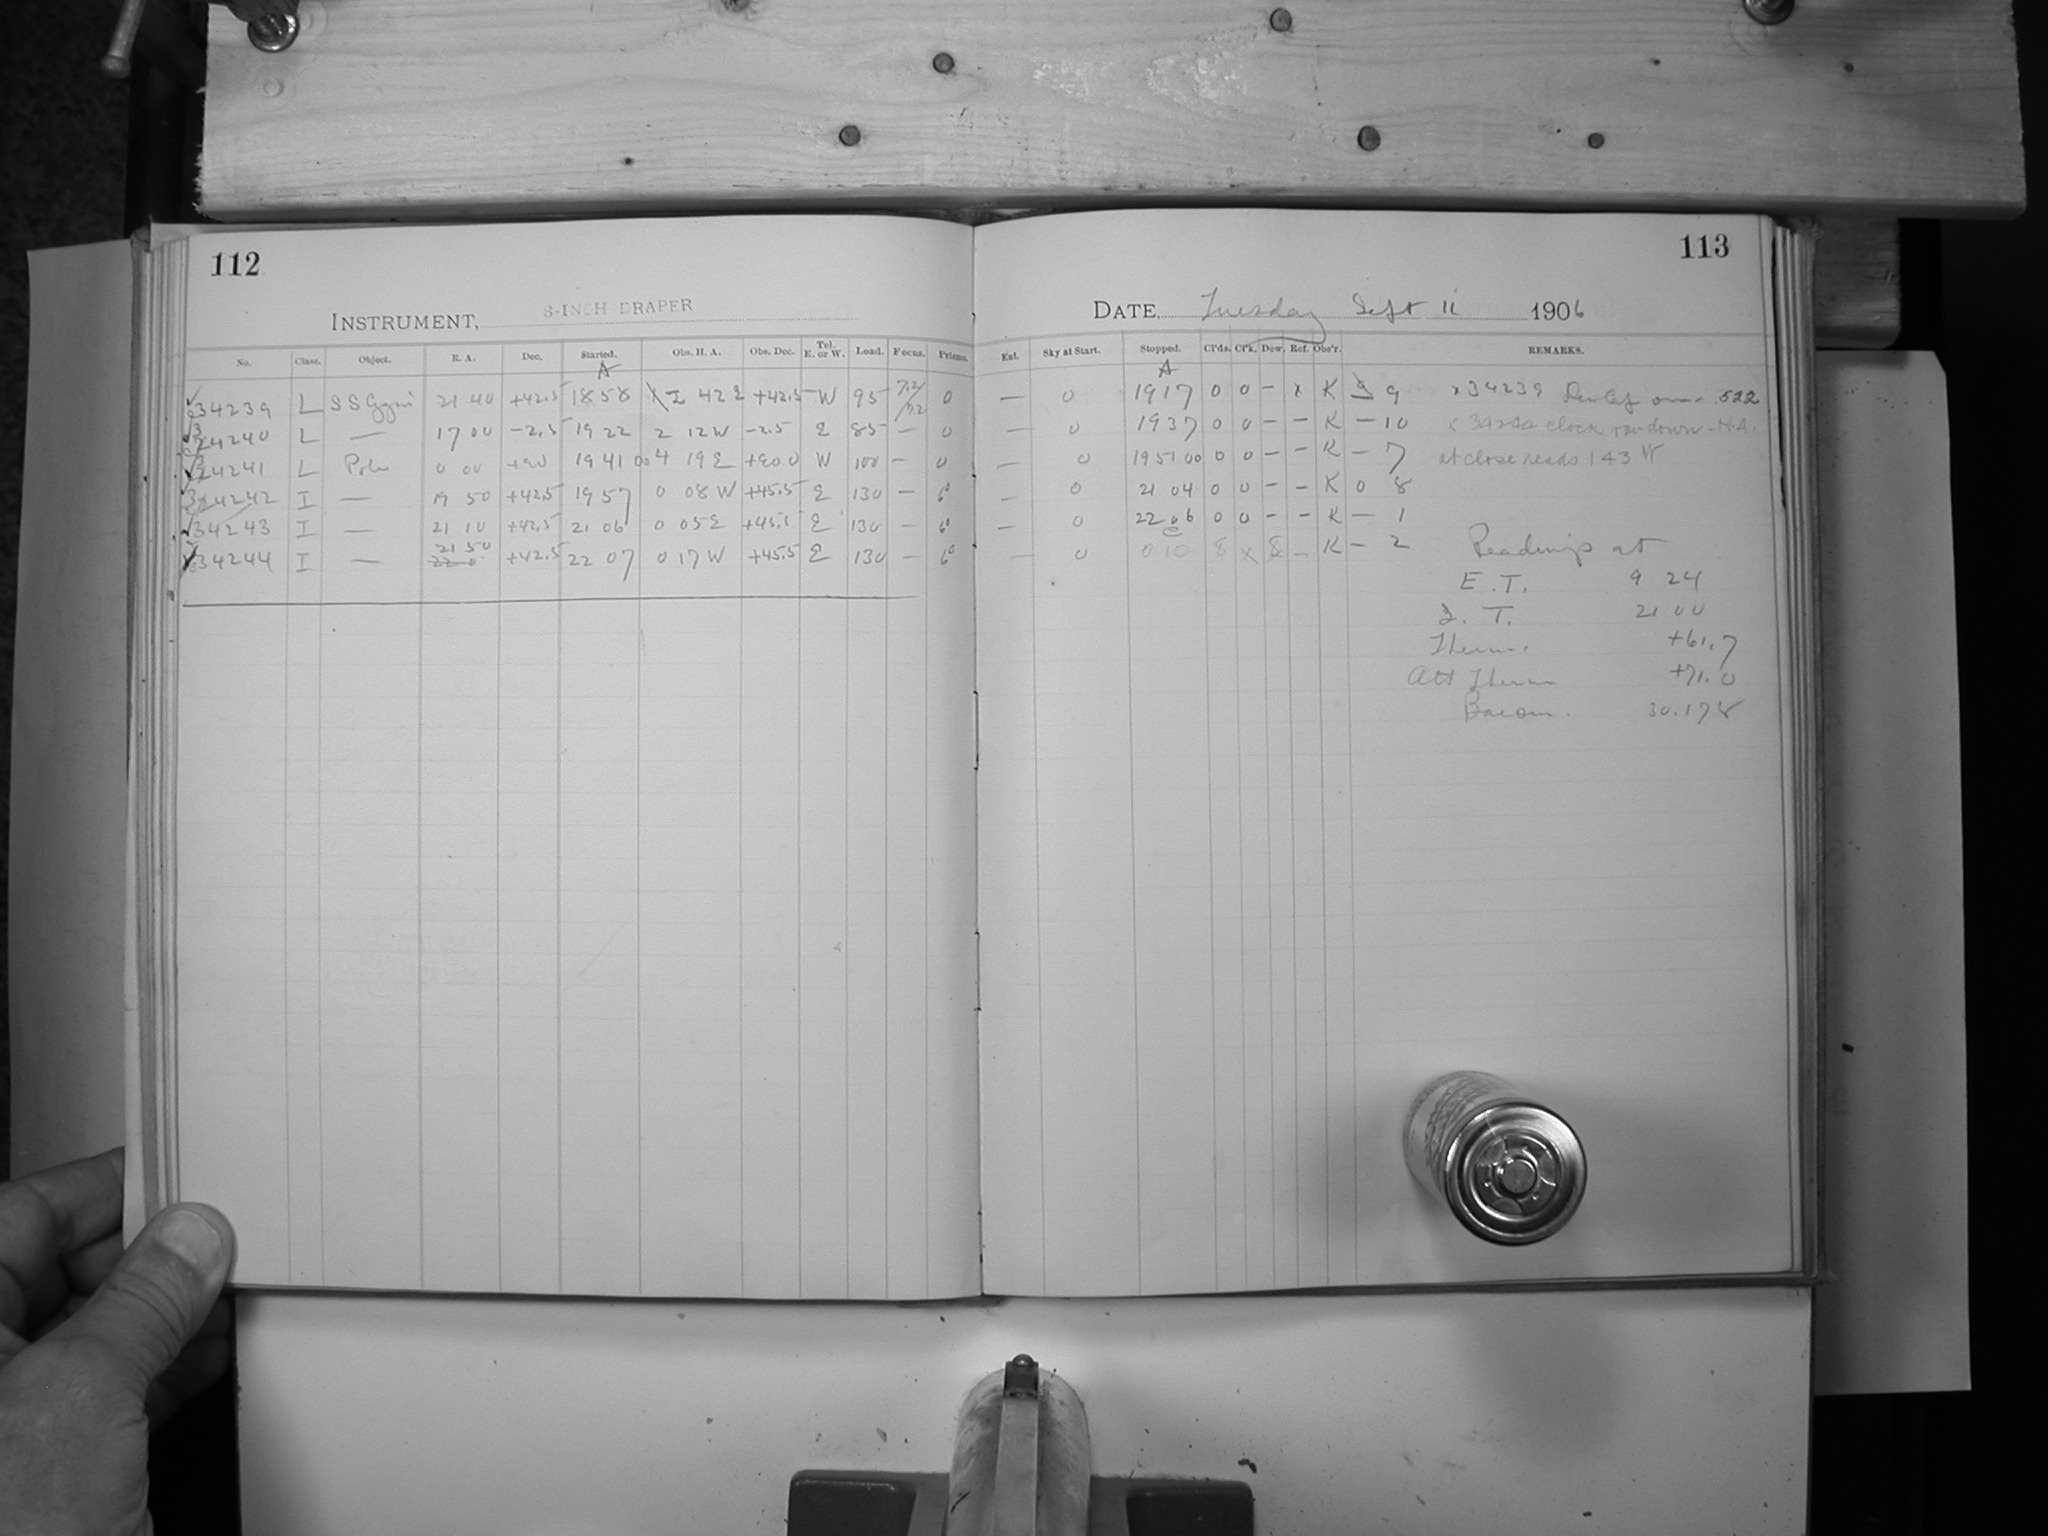 112
113
INSTRUMENT, 8-INCH DRAPER
DATE, Tuesday Sept 11 1906
No. Class. Object. R. A. Dec. Started. Obs. H. A. Obs. Dec. Tel. E. or W. Load. Focus. Prisms. Ent. Sky at Start. Stopped. Cl'ds. Cl'k. Dew. Ref. Obs'r. REMARKS.
34239 L SS Cygni 21 40 +42.5 1858 +42.5 W 95 7.2/7.2 0 — 0 1917 0 0 - x K 9 x34239 .522
34240 L — 17 00 -2.5 1922 2 12W -2.5 E 85 — 0 — 0 1937 0 0 - - K - 10 clock rundown - H.A.
34241 L Pole 0 00 +90 1941 00 4 19 E +90 0 W 100 — 0 — 0 1951 00 0 0 - - K - 7 at close reads 1 43 W
34242 I — 19 50 +42.5 1957 0 08 W +45.5 E 130 — 6° — 0 21 04 0 0 - - K 0 8
34243 I — 21 10 +42.5 21 06 0 05 E +45.5 E 130 — 6° — 0 22 06 0 0 - - K - 1
34244 I — 21 50 +42.5 22 07 0 17 W +45.5 E 130 — 6° — 0 0 10 8 x 8 - K - 2
Readings at
E. T. 9 24
S. T. 21 00
Therm. +61.7
Att Therm +71.0
Barom. 30.178